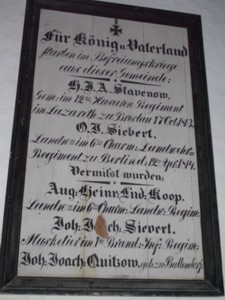 Für König u Vaterland
starben im Befreiungskriege
aus dieser Gemeinde:
H.J.A. Stavenow.
Gem: im 12ten Husaren Regiment
im Lazareth zu Breslau
O.J. Siebert.
Landw: im 6ten Churm: Landwehr=
Regiment zu Berlin d.
Vermißt wurden:
Aug: Heinr: Lud: Koop.
Landw: im 6ten Churm: Landw: Regim:
Joh: Joach: Sievert.
Musketier im 1ten Brand: Inf: Regim:
Joh: Joach: Quitzow.